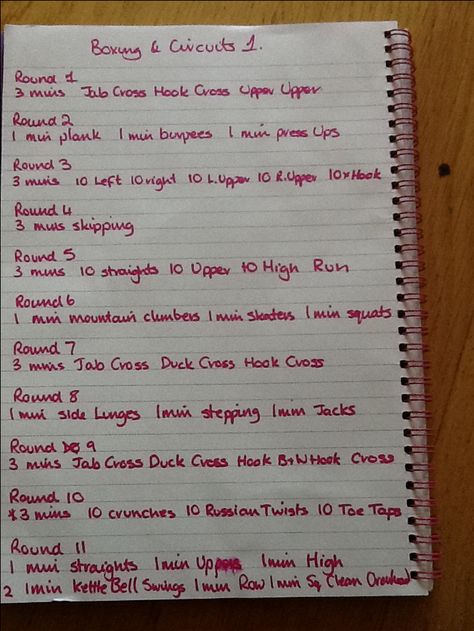 Boxing & Circuits 1.
Round 1
3 mins Jab Cross Hook Cross Upper Upper
Round 2
1 min plank 1 min burpees 1 min press ups
Round 3
3 mins 10 Left 10 right 10 L.Upper 10 R.Upper 10xHook
Round 4
3 mins skipping
Round 5
3 mins 10 straights 10 Upper 10 High Run
Round 6
1 min mountain climbers 1 min skaters 1 min squats
Round 7
3 mins Jab Cross Duck Cross Hook Cross
Round 8
1 min side Lunges 1 min stepping 1 min Jacks
Round 9
3 mins Jab Cross Duck Cross Hook B+W Hook Cross
Round 10
3 mins 10 crunches 10 Russian Twists 10 Toe Taps
Round 11
1 min straights 1 min Uppers 1 min High
2 1min Kettle Bell Swings 1 min Row 1 min Sq Clean Overhead